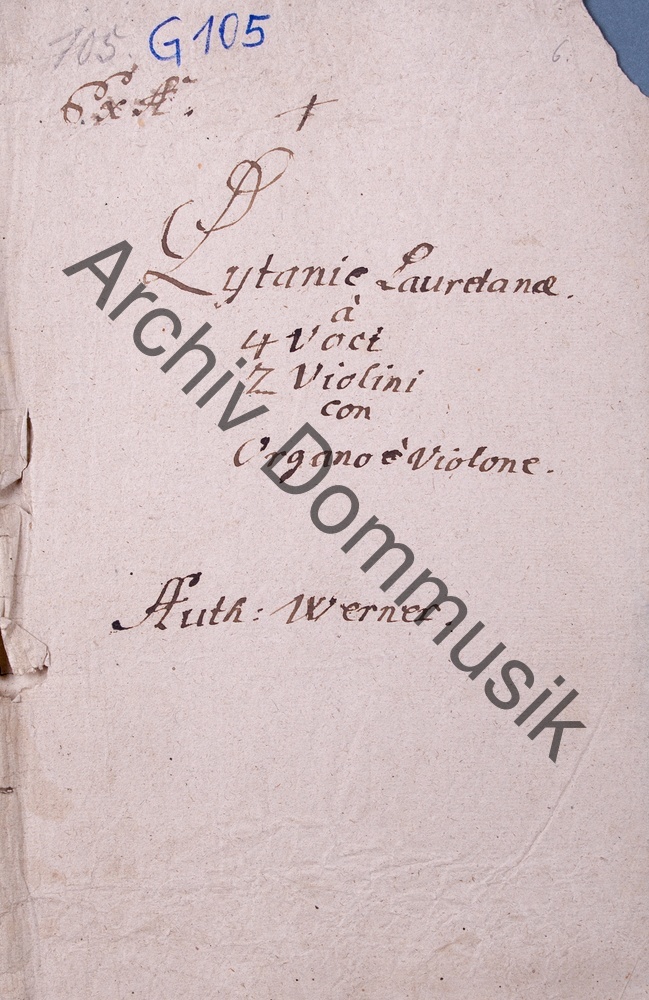 105. G 105
6.
+
Lytanie Lauretanæ.
à
4 Voci
2 Violini
con
Organo è Violone.
Auth: Werner.
Archiv Dommusik